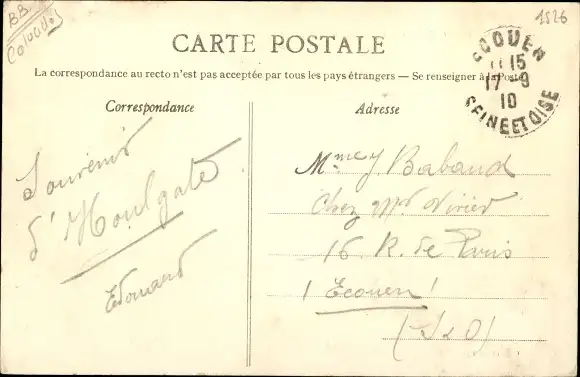 BB
Calvados
1526
CARTE POSTALE
La correspondance au recto n'est pas acceptée par tous les pays étrangers — Se renseigner à la Poste
ECOUEN
11 15
17 - 9
10
SEINE ET OISE
Correspondance
Souvenir
d'Houlgate
Edouard
Adresse
Mme J Babaud
Chez Mr
16 R. de Paris
Ecouen
(S & O)